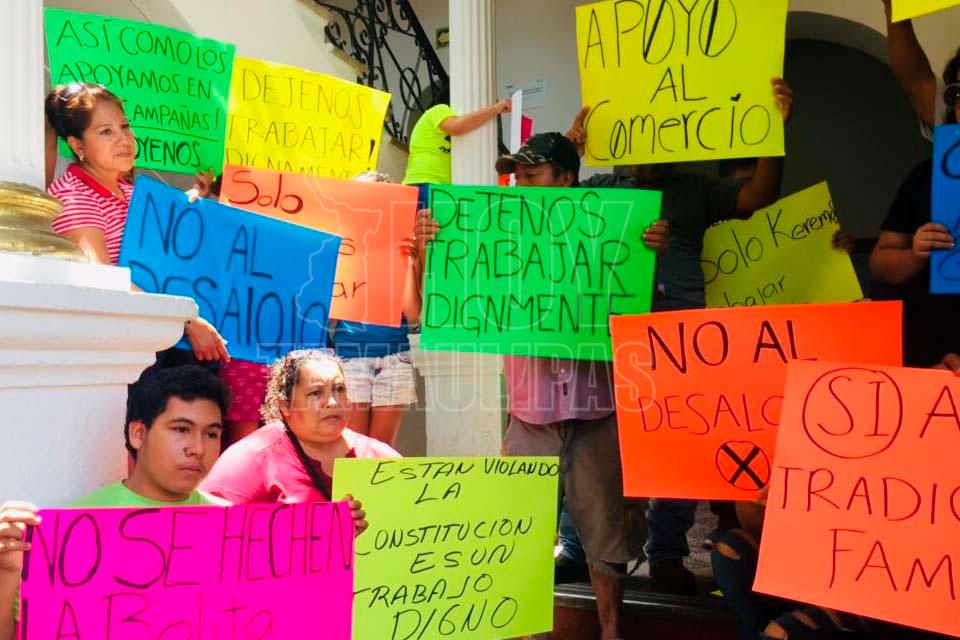 ASÍ COMO LOS
APOYAMOS EN
CAMPAÑAS!
DEJENOS
TRABAJAR
DIGNAMENTE!
APOYO
AL
Comercio
Solo
NO AL
DESALOJO
DEJENOS
TRABAJAR
DIGNMENTE
SOLO Keremo
NO AL
DESALO
SI A
TRADICIO
FAM
ESTAN VIOLANDO
LA
CONSTITUCION
ES UN
TRABAJO
DIGNO
NO SE HECHEN
LA Bolita
HOY
TAMAULIPAS